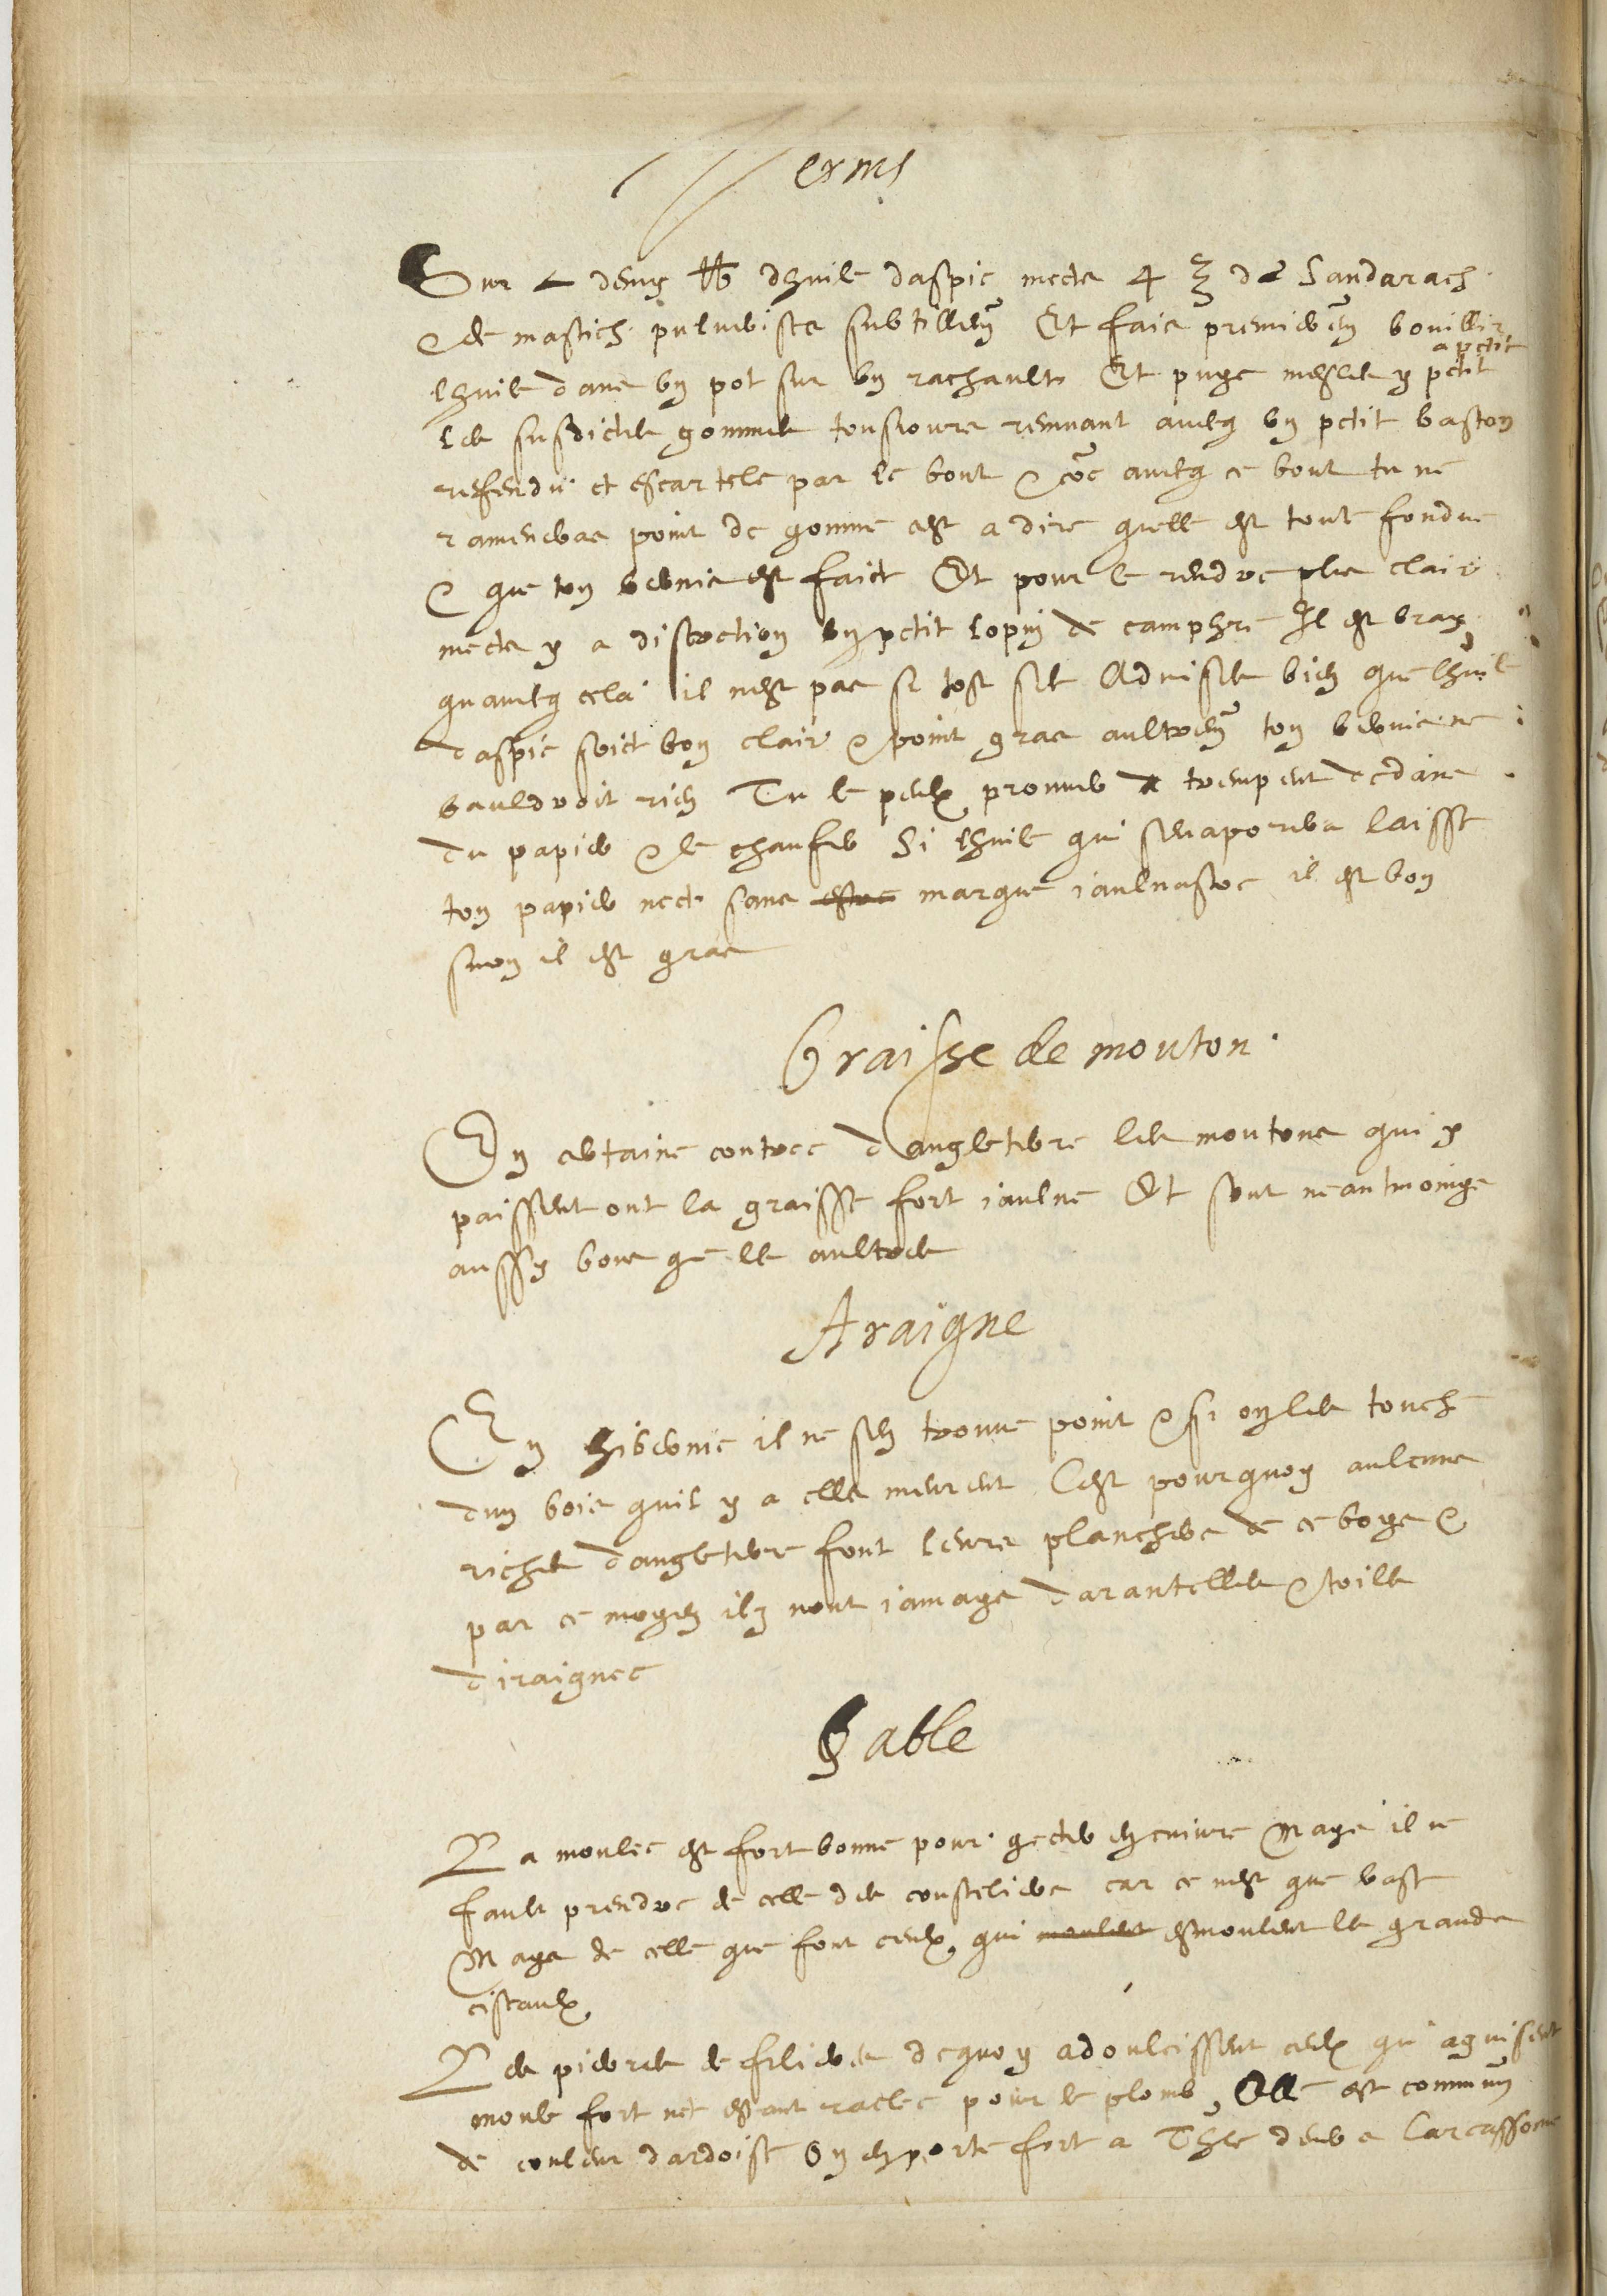 Vernis
Sur demy ℔ dhuile daspic mects 4 ℥ de Sandarach
& de mastich pulverises subtillem{ent} Et fais premierem{ent} bouillir
a petit
lhuile dans un pot sur un rachault Et puys mesles y petit
les susdictes gommes tousiours remuant avecq un petit baston
refendu et escartele par le bout & co{mm}e avecq ce bout tu ne
rameneras point de gomme cest a dire quelle est toute fondue
& que ton vernis est faict Et pour le rendre plus clair
mects y a discretion un petit lopin de camphre Il est vray
quavecq cela il nest pas si tost sec Advises bien que lhuile
daspic soict bon clair & point gras aultrem{ent} ton vernis ne
vauldroit rien Tu le peulx prouver trempent dedans
du papier & le chaufer Si lhuile qui sevaporera laisse
ton papier nect sans estre marque iaulnastre il est bon
sinon il est gras
Graisse de mouton
En certaine contree dangleterre les moutons qui y
paissent ont la graisse fort iaulne Et sont neantmoings
aussy bons que les aultres
Araigne
En hibernie il ne sen trouve point & si on les touche
dun bois quil y a elles meurent Cest pourquoy aulcuns
riches dangleterre font leurs planchers de ce boys &
par ce moyen ilz nont iamays darantelles & toiles
diraignee
Sable
La moulee est fort bonne pour gecter en cuivre Mays il ne
fault prendre de celle des cousteliers car ce nest que vase
Mays de celle que font ceulx qui moulent esmoulent les grands
ciseaulx
Les pierres de filieres dequoy adoulcissent ceulx qui aguisent
moule fort net estant raclee pour le plomb Elle est commun{ement}
de couleur dardoise On en porte fort a Th{o}l{os}e devers Carcassonne